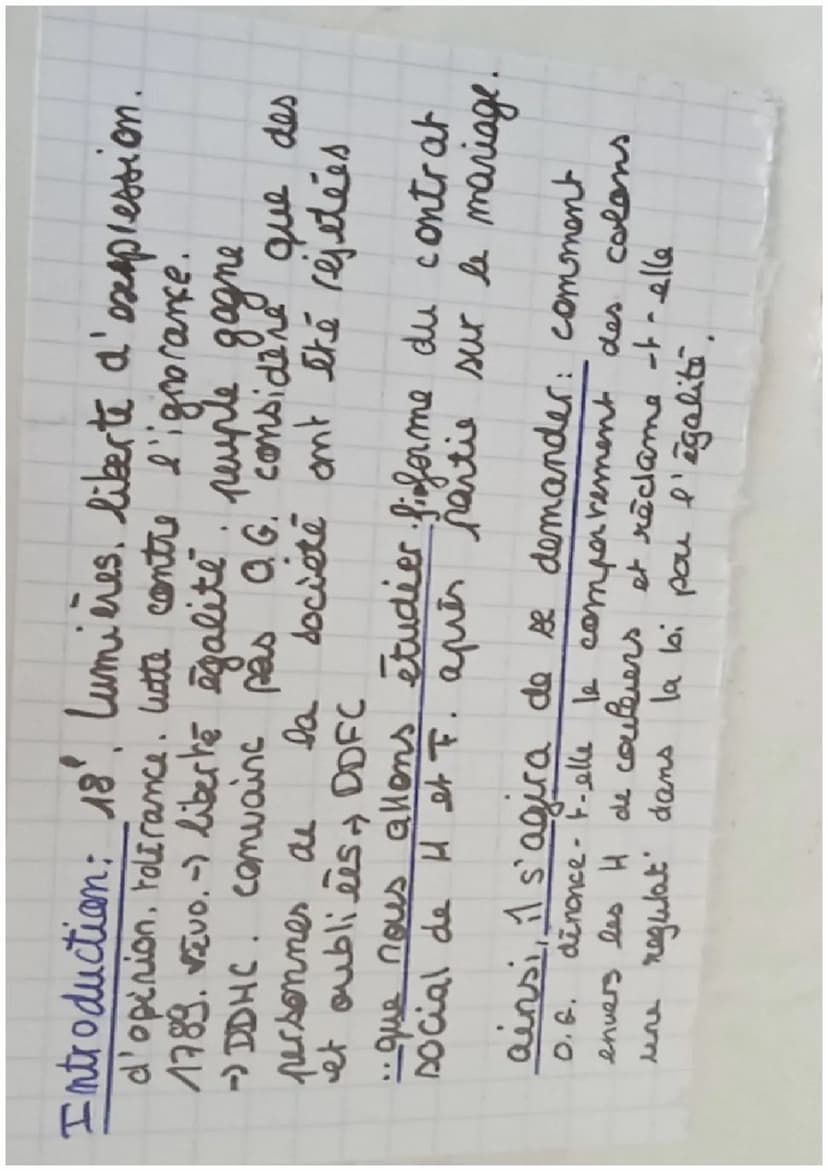 Introduction: 18e, Lumières, liberté d'expression.
d'opinion, tolérance, lutte contre l'ignorance.
1789. révo. → liberté égalité. peuple gagne
→ DDHC. convainc pas O.G. considère que des
personnes de la société ont été rejetées
et oubliées → DDFC
:: que nous allons étudier: forme du contrat
social de H et F. après partie sur le mariage.
ainsi, il s'agira de se demander: comment
O.G. dénonce-t-elle le comportement des colons
envers les H de couleurs et réclame-t-elle
une regulat° dans la loi pour l'égalité.